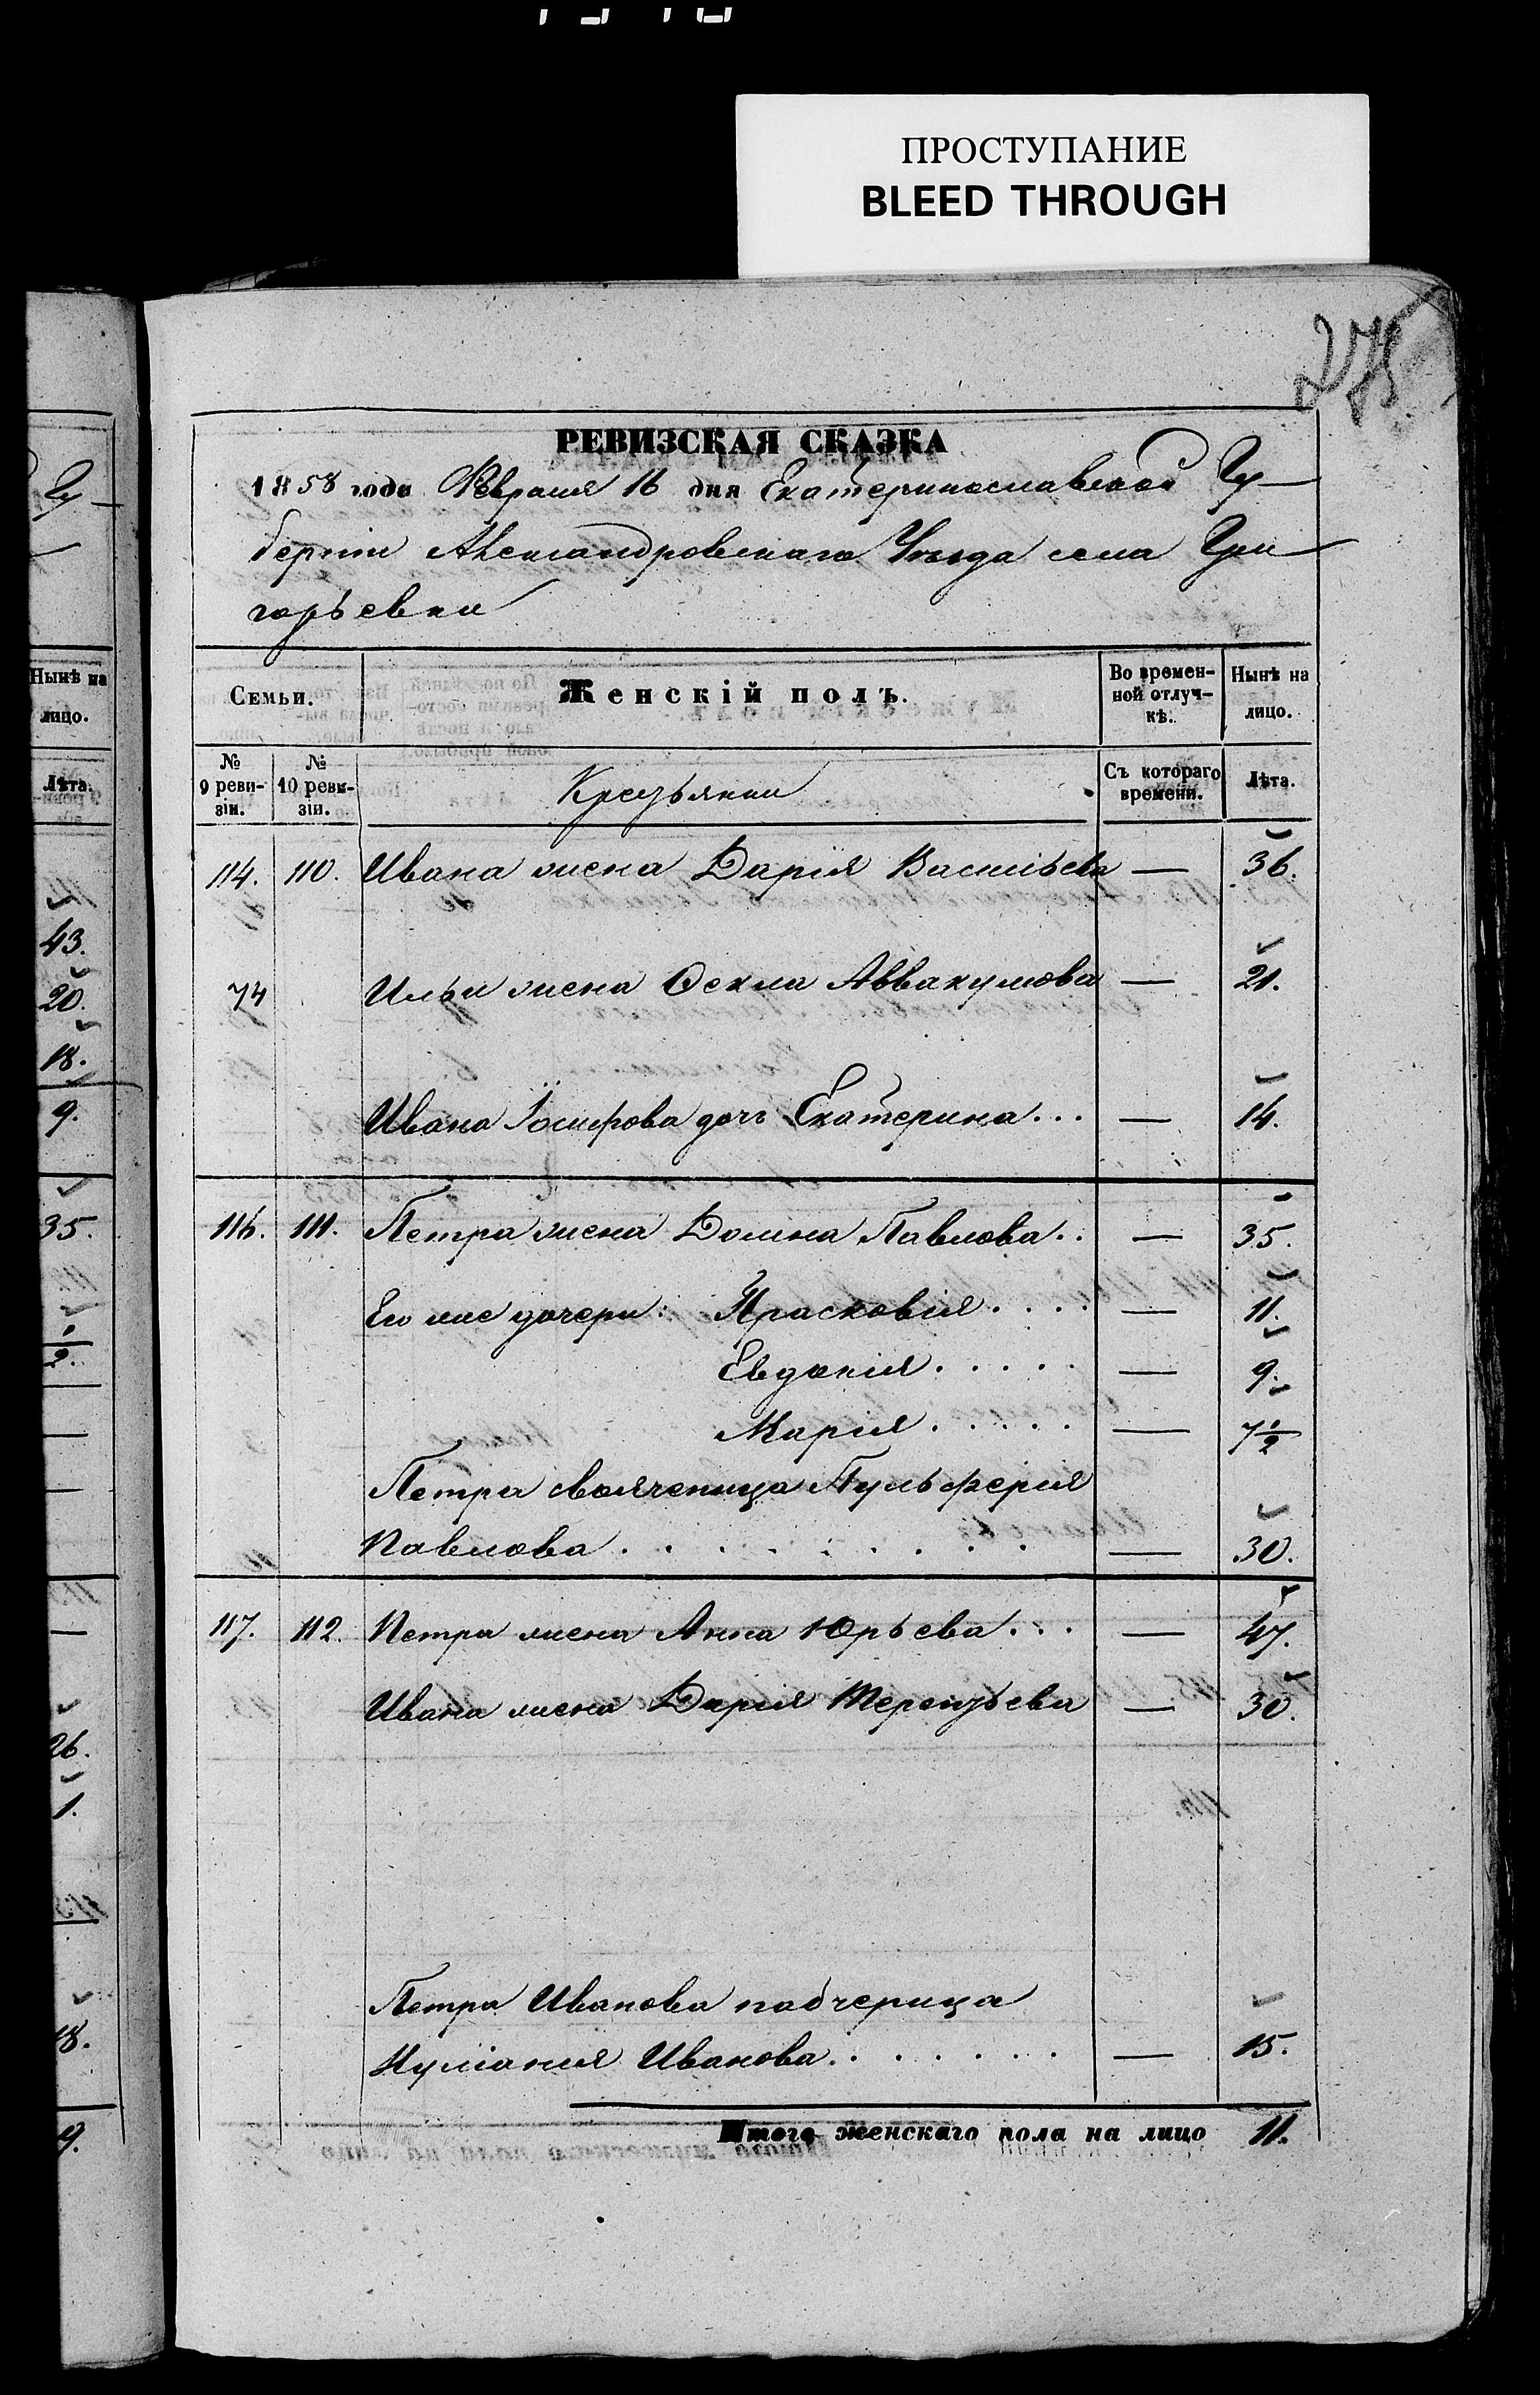 ПРОСТУПАНИЕ
BLEED THROUGH
275
РЕВИЗСКАЯ СКАЗКА
1858 года Февраля 16 дня Екатеринославской Гу-
берніи Александровскаго Уѣзда села Гри-
горьевки
Семьи.
Женскій полъ.
Во времен-
ной отлуч-
кѣ.
Нынѣ на
лицо.
№
9 реви-
зіи.
№
10 реви-
зіи.
Крестьянки
Съ котораго
времени.
Лѣта.
114. 110. Ивана жена Дарія Васильева — 36.
74 Ильи жена Ѳекла Аввакумова — 21.
Ивана Іосифова дочь Екатерина... — 14.
116. 111. Петра жена Домна Павлова.. — 35.
Его же дочери: Прасковія.... — 11.
Евдокія..... — 9.
Марія..... — 7 1/2
Петра свояченица Пульферія
Павлова......... — 30.
117. 112. Петра жена Анна Юрьева... — 47.
Ивана жена Дарія Терентьева — 30.
Петра Иванова падчерица
Иванова....... — 15.
Итого женскаго пола на лицо 11.
Гу-
Нынѣ на
лицо.
Лѣта.
43.
20.
18.
9.
35.
26.
1.
18.
9.